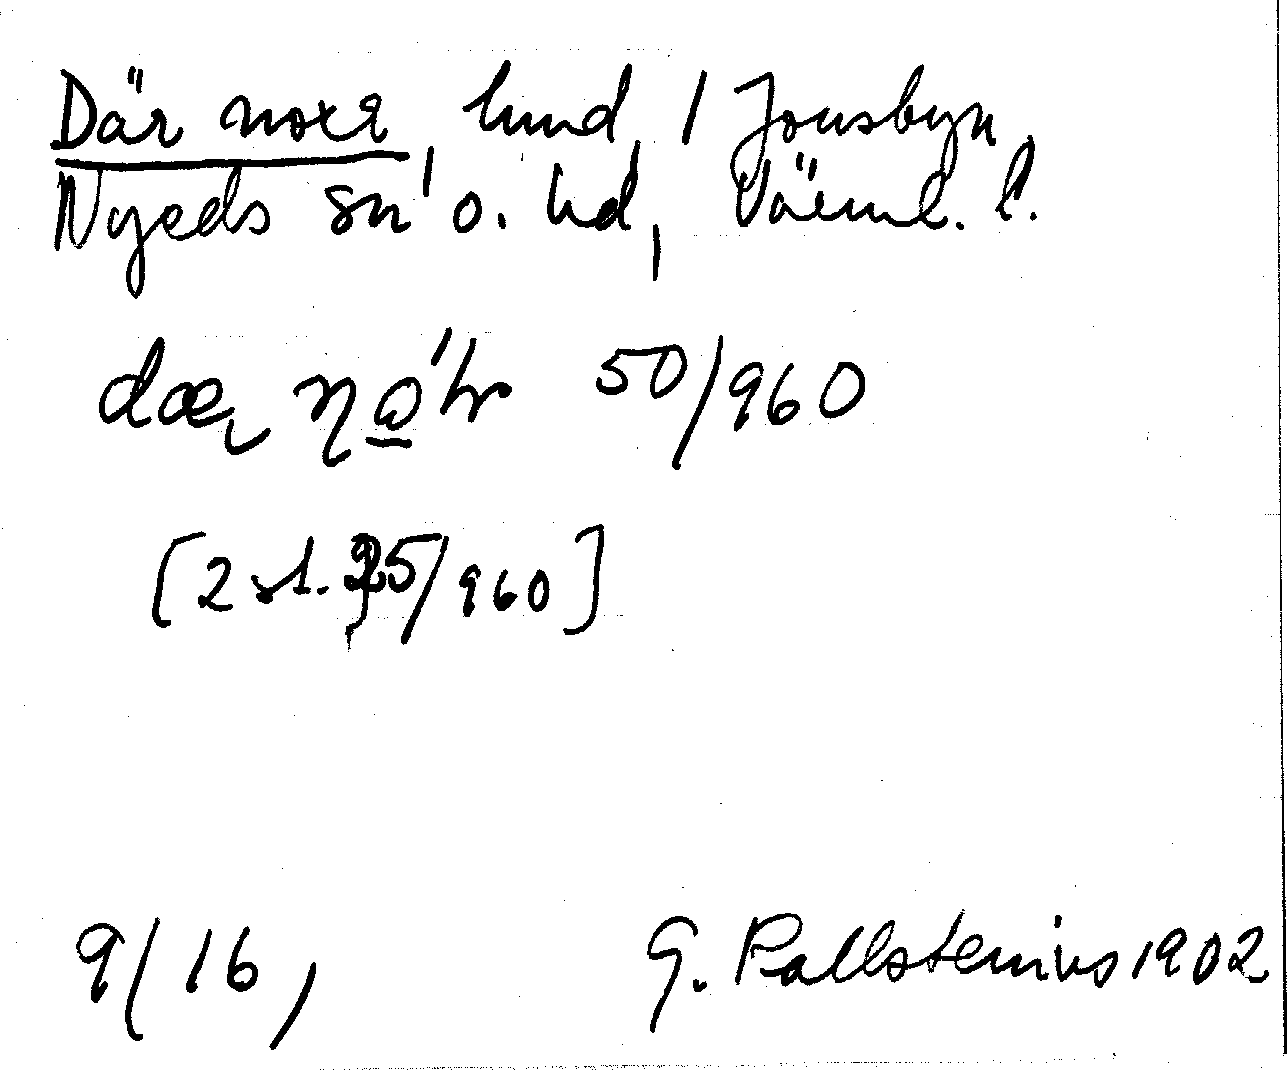 Där norr, lund, 1 Jonsbyn,
Nyeds sn o. hd, Värml. l.
50/960
[2 st. 25/960]
9/16, G. Kallstenius 1902